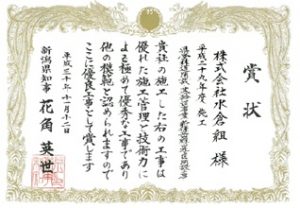 賞状
株式会社水倉組 様
平成二十九年度 施工
貴社の施工した右の工事は
優れた施工管理と技術力に
よる極めて優秀な工事であり
他の模範と認められますので
ここに優良工事として賞します
平成三十年十一月十二日
新潟県知事 花角英世